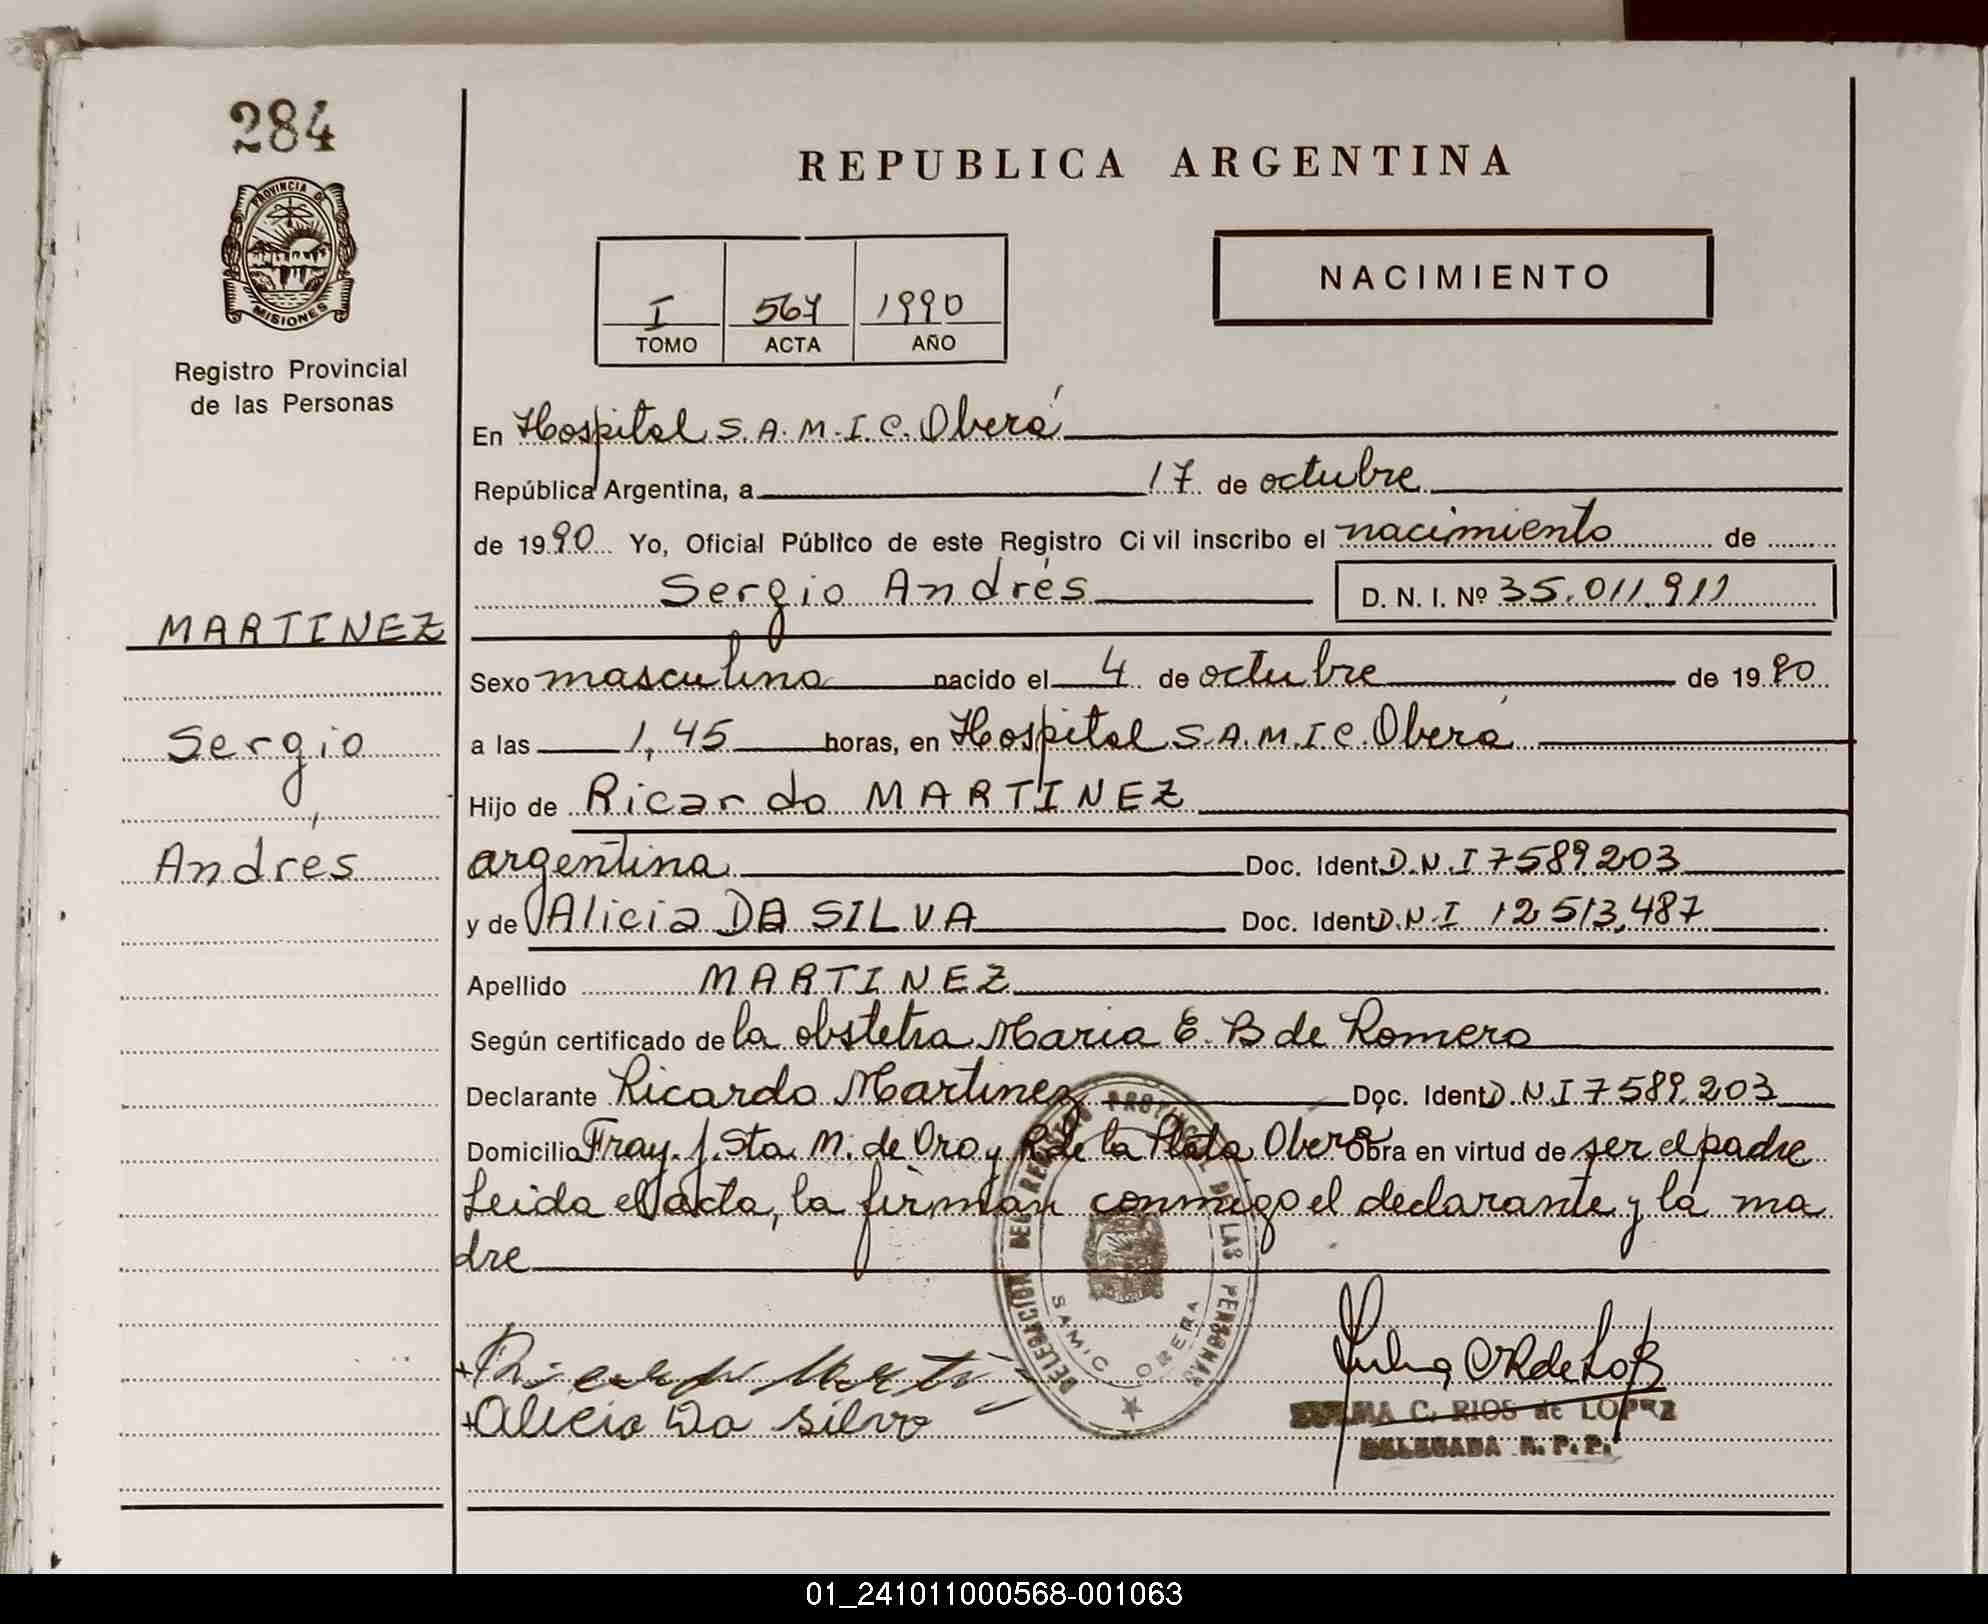 284
PROVINCIA DE
MISIONES
Registro Provincial
de las Personas
REPUBLICA ARGENTINA
I 567 1990
TOMO ACTA AÑO
NACIMIENTO
En Hospital S.A.M.I.C. Oberá
República Argentina, a 17 de octubre
de 1990 Yo, Oficial Público de este Registro Civil inscribo el nacimiento de
Sergio Andrés D. N. I. Nº 35.011.911
MARTINEZ
Sexo masculino nacido el 4 de octubre de 1990
Sergio
a las 1,45 horas, en Hospital S.A.M.I.C. Oberá
Hijo de Ricardo MARTINEZ
Andrés
argentina Doc. Ident D.N.I 7589.203
y de Alicia DA SILVA Doc. Ident D.N.I 12.513.487
Apellido MARTINEZ
Según certificado de la obstetra Maria E. B de Romero
Declarante Ricardo Martinez Doc. Ident D.N.I 7589.203
Domicilio Fray. J. Sta. M. de Oro y R. de la Plata Oberá Obra en virtud de ser el padre
Leida el acta, la firman conmigo el declarante y la ma
dre
DELEGACION DEL REGISTRO PROVINCIAL DE LAS PERSONAS
SAMIC OBERA
Alicia Da Silva
C. RIOS de LOPEZ
DELEGADA R. P. P.
01_241011000568-001063